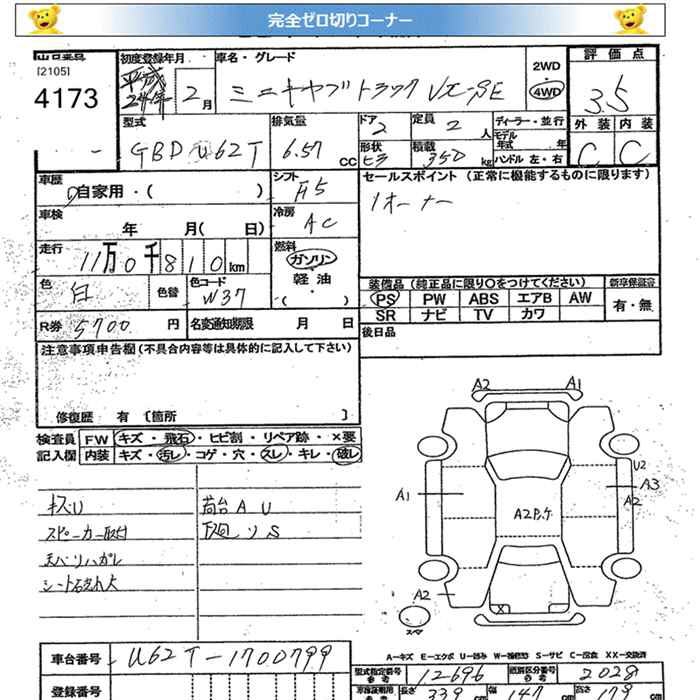 完全ゼロ切りコーナー
出品番号
[2105]
4173
初度登録年月
平成
24年
2月
車名・グレード
ミニキャブトラック VX-SE
2WD
4WD
評価点
3.5
型式
GBD U62T
排気量
6.57
CC
ドア
2
定員
2
人
形状
積載
350
kg
ディーラー・並行
モデル
年式
年
ハンドル 左・右
外装
内装
C
C
車歴
自家用・( )
シフト
F5
セールスポイント(正常に機能するものに限ります)
1オーナー
車検
年 月( 日)
冷房
AC
走行
11万0千810km
燃料
ガソリン
軽油
・( )
色
白
色替
色コード
W37
装備品(純正品に限り○をつけてください)
新車保証書
PS PW ABS エアB AW
有・無
SR ナビ TV カワ
R券
5700
円
名変通知期限
月 日
後日品
注意事項申告欄(不具合内容等は具体的に記入して下さい)
修復歴 有〔箇所 〕
検査員
FW
キズ・飛石・ヒビ割・リペア跡・×要
記入欄
内装
キズ・汚レ・コゲ・穴・スレ・キレ・破レ
キズU
荷台AU
スピーカー取付
下廻リS
天バリハガレ
A2
A1
A1
A2
U2
A3
A2
A2
X
スペア
A-キズ E-エクボ U-凹み W-補修跡 S-サビ C-腐食 XX-交換済
車台番号
U62T-1700799
登録番号
型式指定番号
参考
12696
類別区分番号
参考
2028
長さ
339
cm
幅
147
cm
高さ
cm